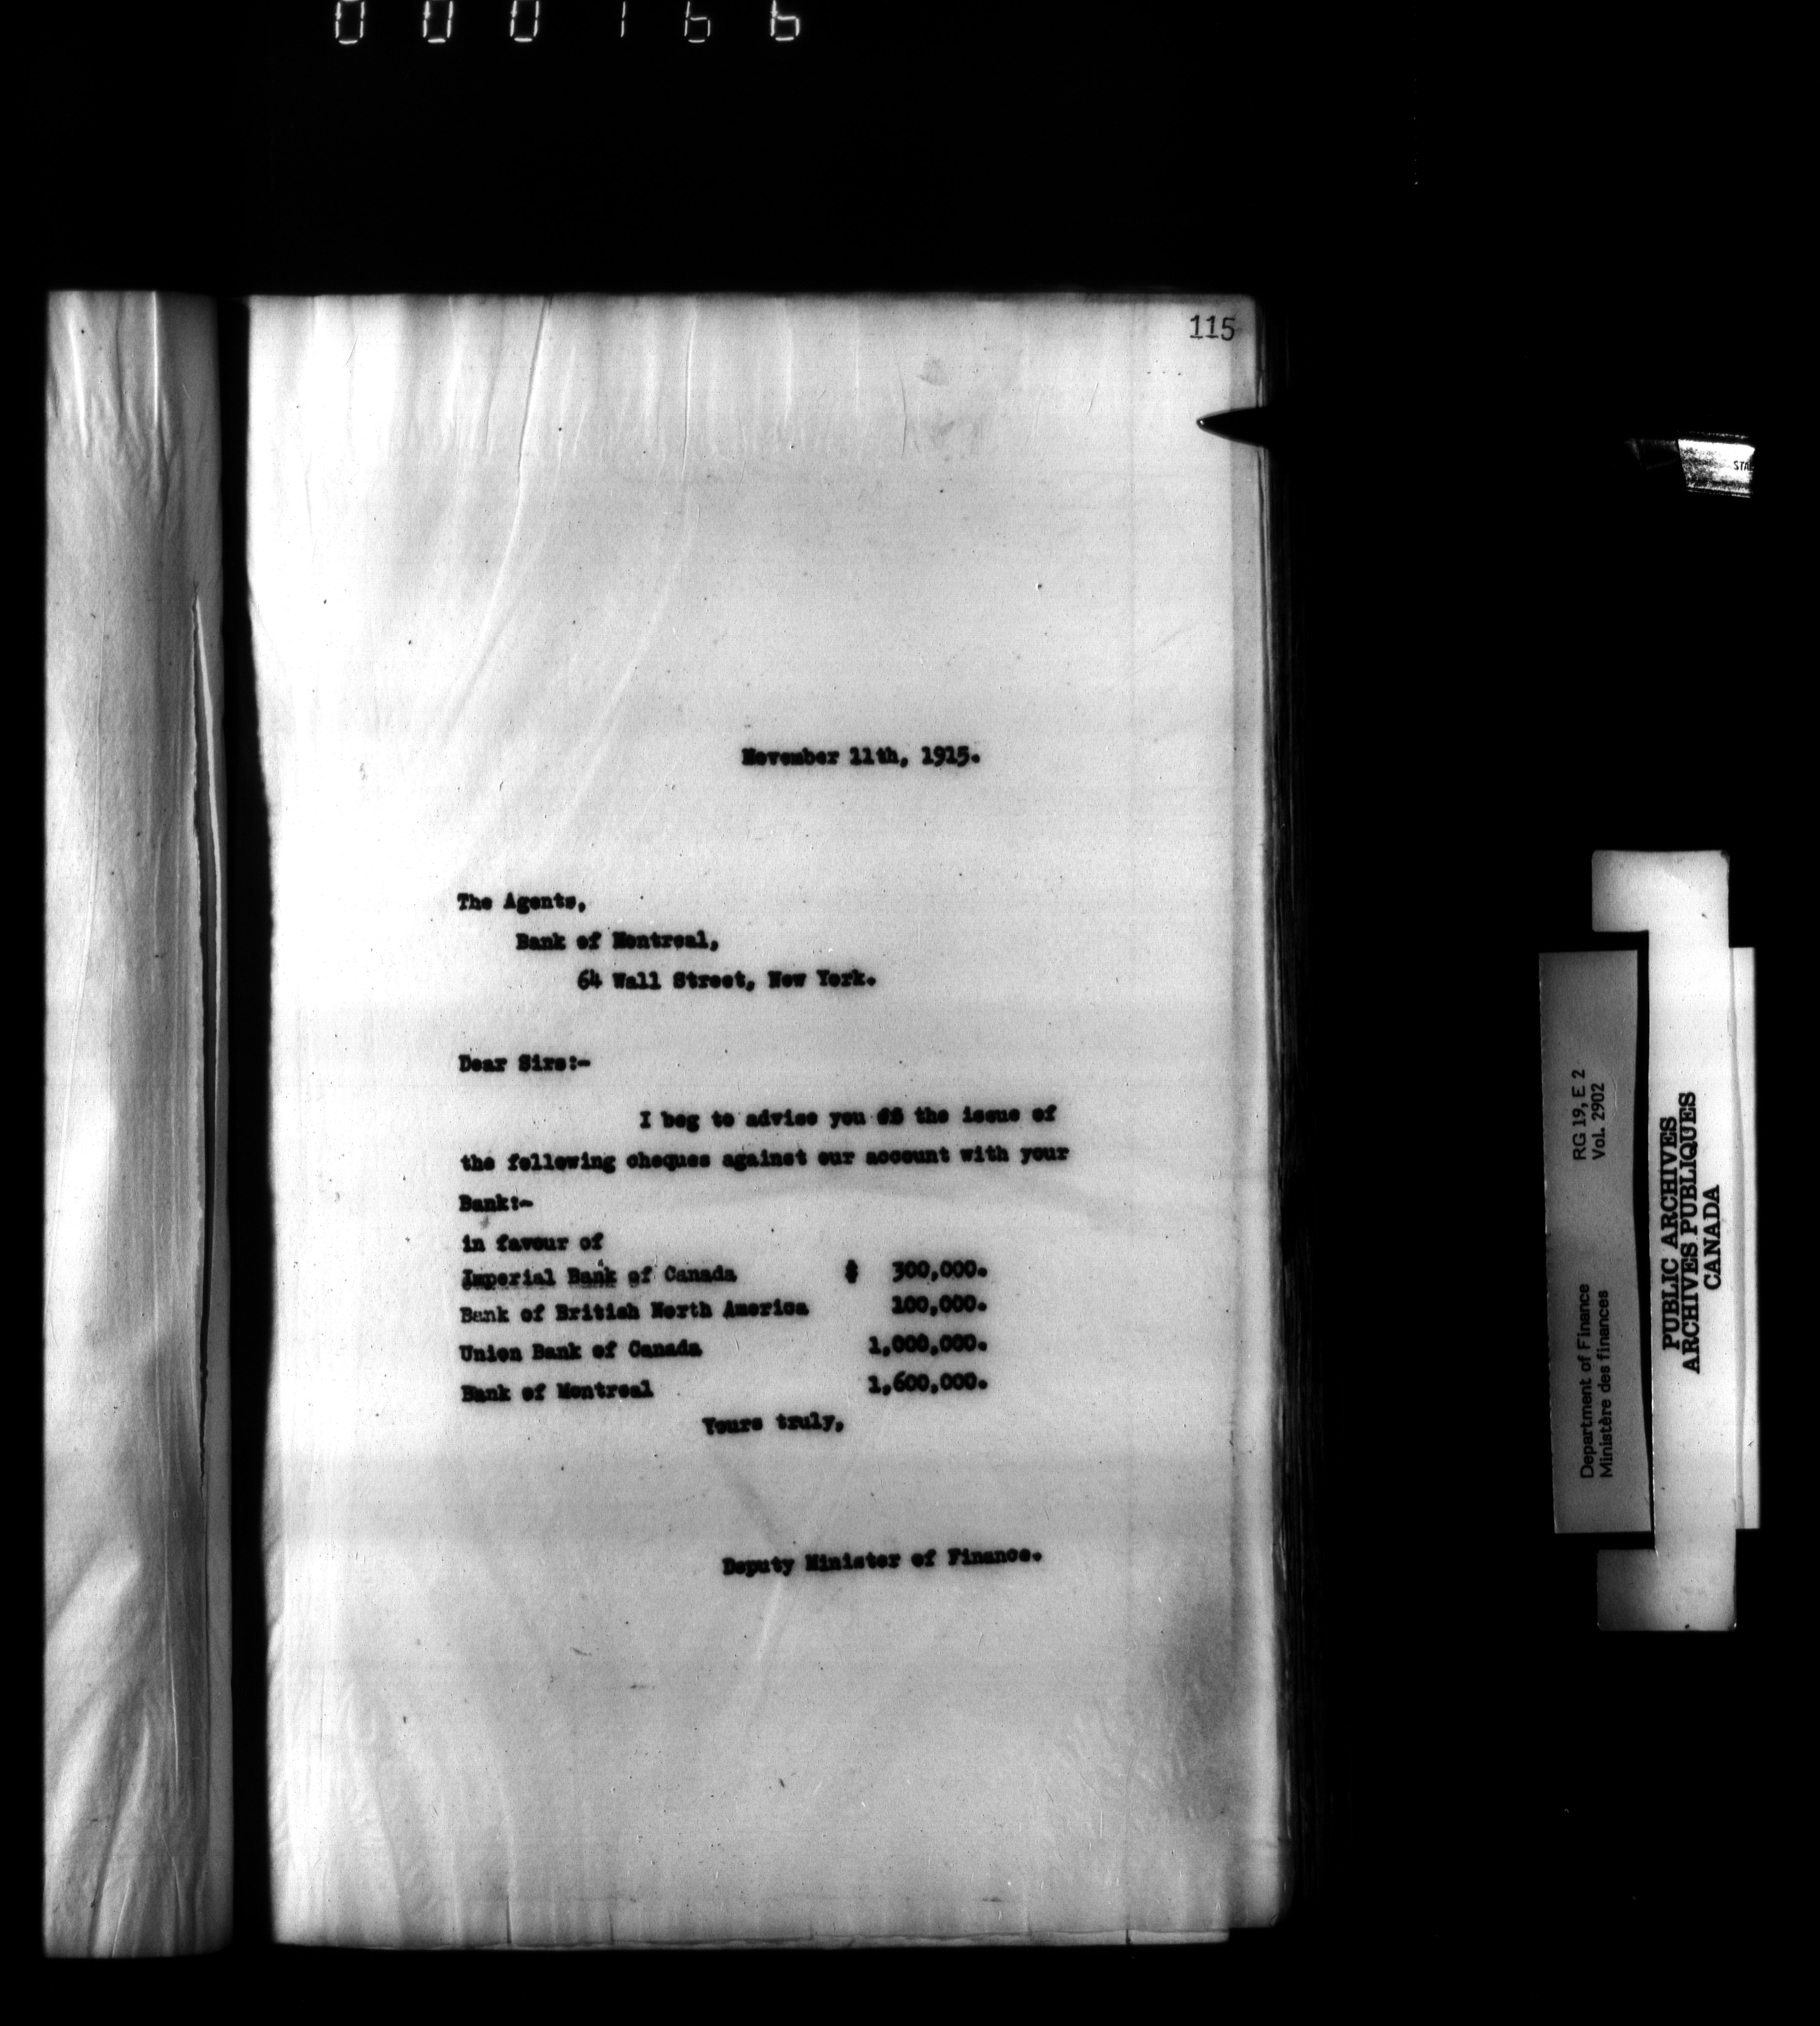 000166
115
November 11th, 1915.
The Agents,
Bank of Montreal,
64 Wall Street, New York.
Dear Sirs:-
I beg to advise you of the issue of
the following cheques against our account with your
Bank:-
in favour of
Imperial Bank of Canada $ 300,000.
Bank of British North America 100,000.
Union Bank of Canada 1,000,000.
Bank of Montreal 1,600,000.
Yours truly,
Deputy Minister of Finance.
Department of Finance RG 19, E 2
Ministère des finances Vol. 2902
PUBLIC ARCHIVES
ARCHIVES PUBLIQUES
CANADA